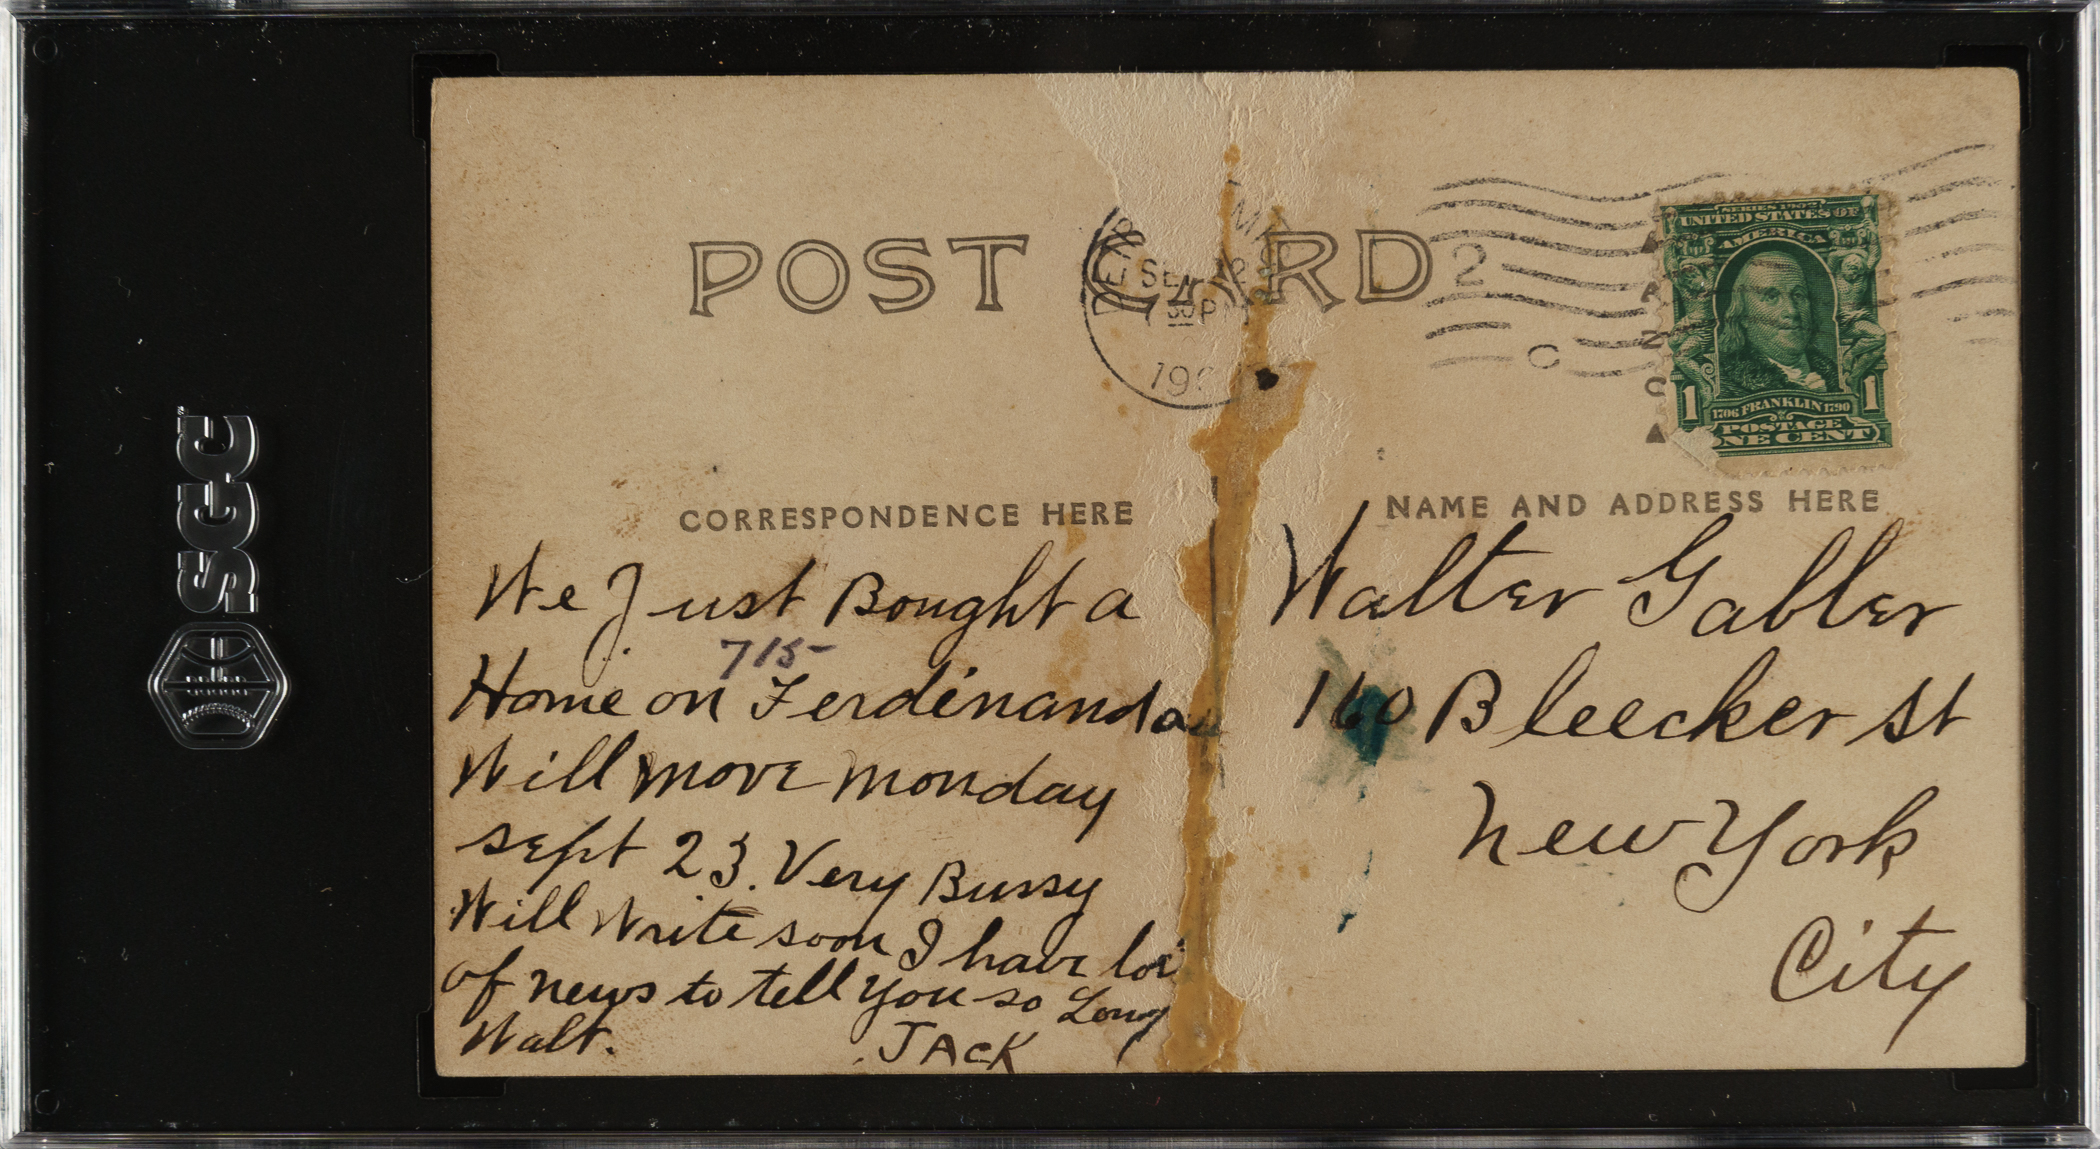 SGC
POST CARD
SERIES 1902
UNITED STATES OF
AMERICA
1706 FRANKLIN 1790
POSTAGE
NE CENT
1 1
SE 12
30 P
2
C
CORRESPONDENCE HERE
We Just Bought a
715-
Home on Ferdinand
Will move monday
sept 23. Very Bussy
Will Write soon I have
of news to tell you so Long
Walt. JACK
NAME AND ADDRESS HERE
Walter Gabler
160 Bleecker st
New York
City